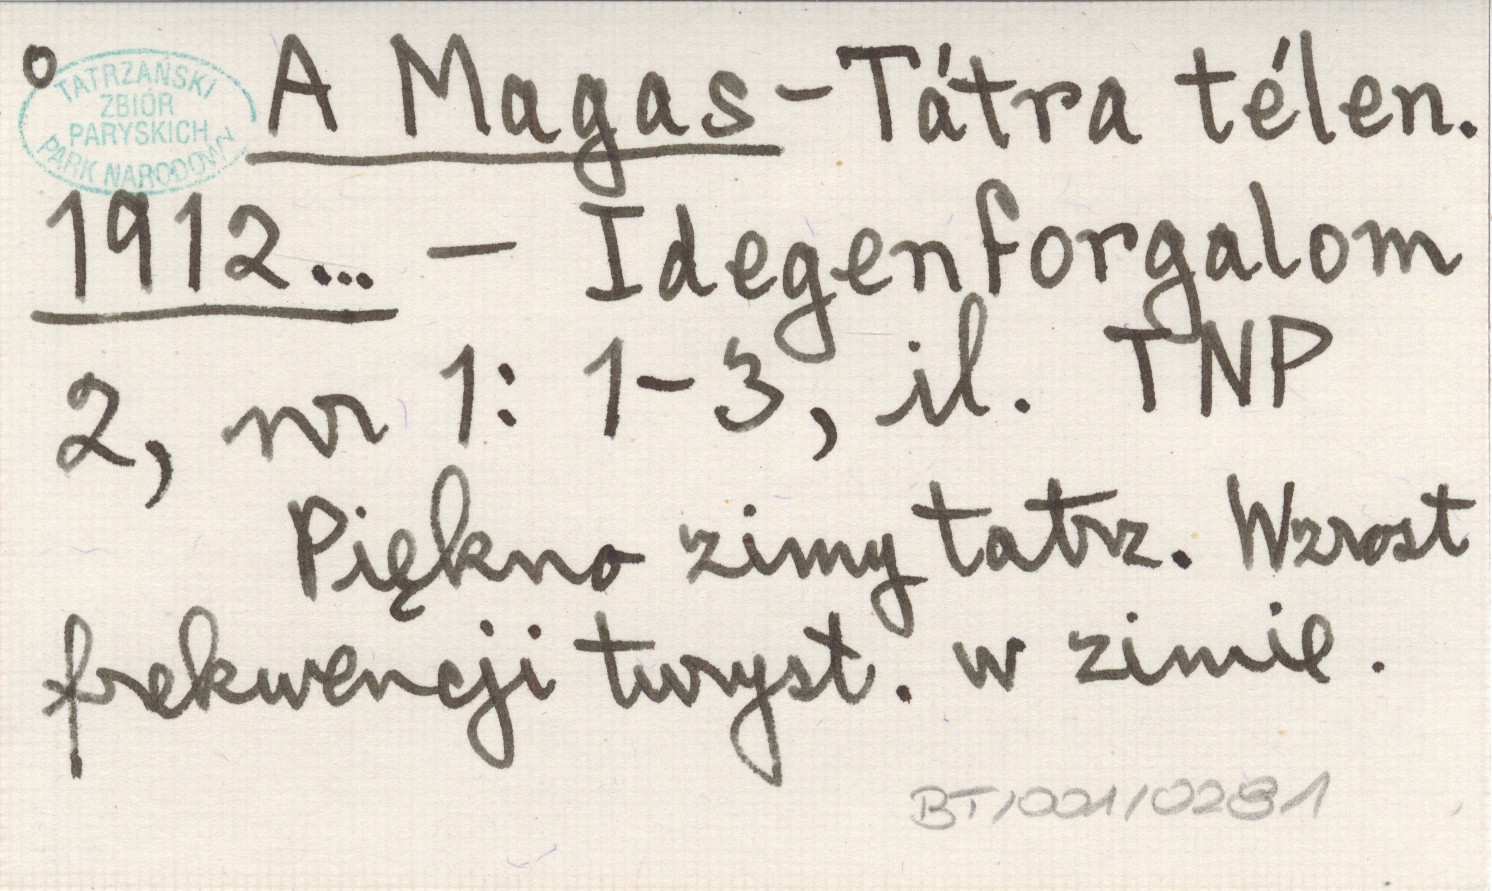 o
TATRZAŃSKI
ZBIÓR
PARYSKICH
PARK NARODOWY
A Magas-Tátra télen.
1912... - Idegenforgalom
2, nr 1: 1-3, il. TNP
Piękno zimy tatrz. Wzrost
frekwencji turyst. w zimie.
BT/001/0281